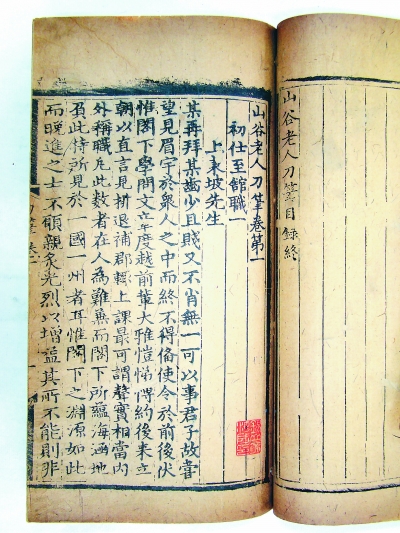 山谷老人刀筆目錄終
山谷老人刀筆卷第一
初仕至館職一
上東坡先生
某再拜某齒少且賤又不肖無一可以事君子故嘗
望見眉宇於衆人之中而終不得備使令於前後伏
惟閣下學問文章度越前輩大雅愷悌博約後來立
朝以直言見排退補郡輒上課最可謂聲實相當內
外稱職凡此數者在人為難兼而閣下所蘊海涵地
負此特所見於一國一州者耳惟閣下之淵源如此
而晚進之士不願親炙光烈以增益其所不能則非